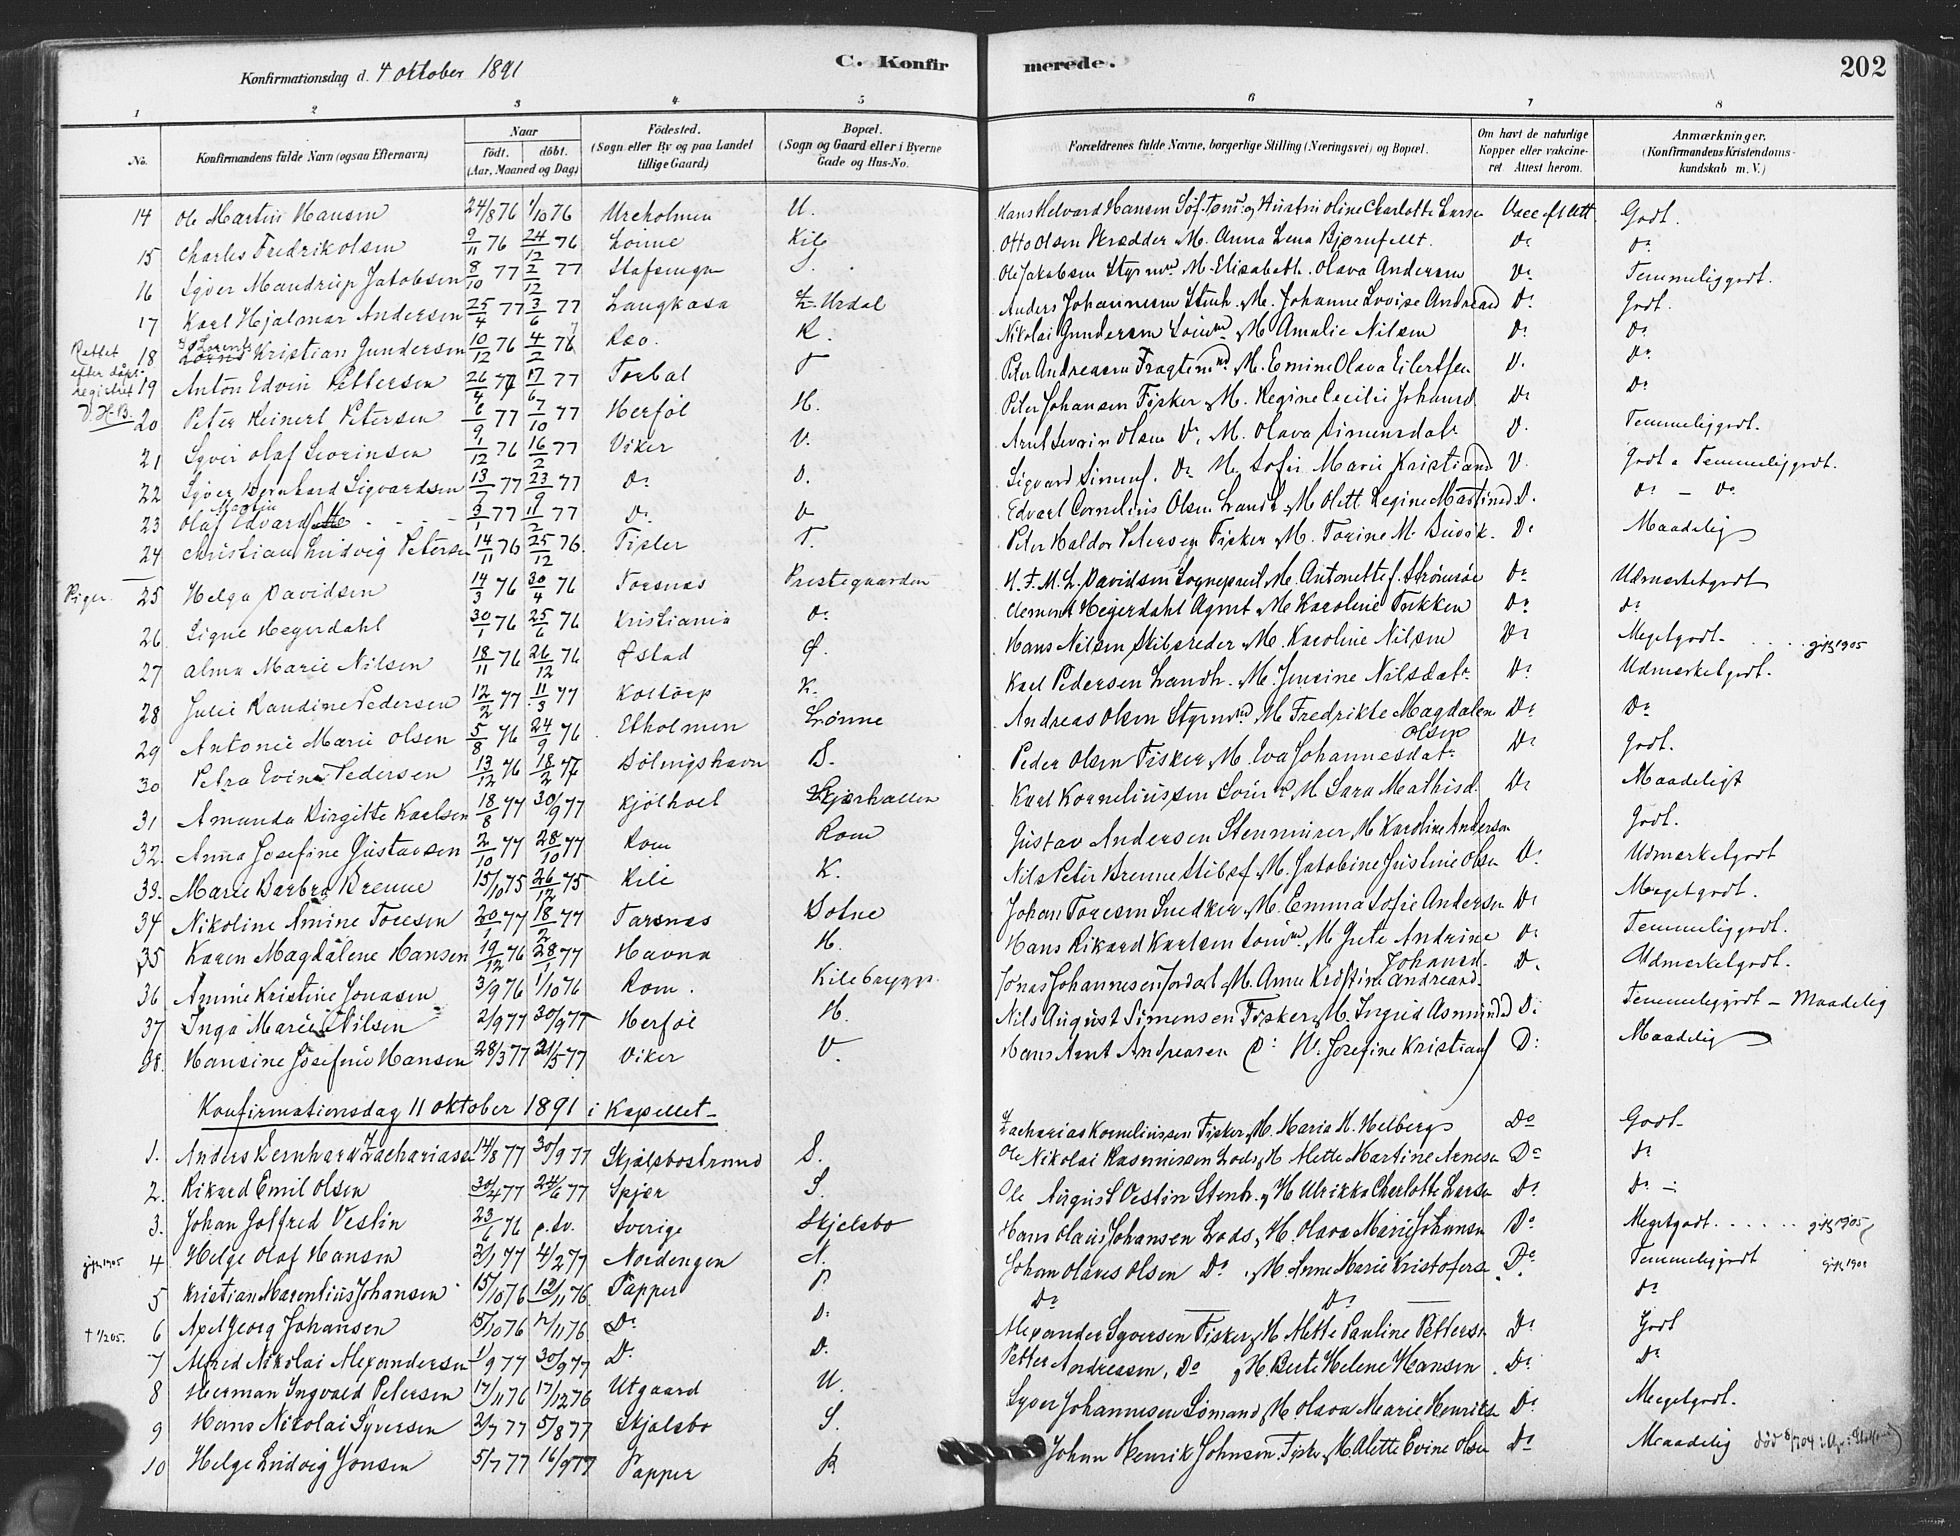 Konfirmationsdag d. 4 oktober 1891
C. Konfirmerede.
202
1 2 3 4 5 6 7 8
No. Konfirmandens fulde Navn (ogsaa Efternavn) Naar födt. döbt. (Aar, Maaned og Dag) Födested. (Sogn eller By og paa Landet tillige Gaard) Bopæl. (Sogn og Gaard eller i Byerne Gade og Hus-No. Forældrenes fulde Navne, borgerlige Stilling (Næringsvei) og Bopæl. Om havt de naturlige Kopper eller vakcineret Attest herom. Anmærkninger. (Konfirmandens Kristendomskundskab m. V.)
14 Ole Martin Hansen 24/8 76 1/10 76 Ureholmen U. Hans Helvard Hansen Charlotte Vacc eft Att. Godt.
15 Charles Fredrik Olsen 9/11 76 24/12 76 Lönne Otto Olsen Skrædder M. Anna Lena Bjørnfelt. Do Do
16 Syver Mandrup Jakobsen 8/10 77 2/12 77 Ole Jakobsen Styrmd M. Elisabeth Olava Andersen Do Temmeliggodt.
17 Karl Hjalmar Andersen 25/4 77 3/6 77 Langkasa L. Urdal Anders Johannesen Stenh. M. Johanne Lovise Andread Do Godt.
Rettet efter döbsregistret
18 Lorents Kristian Gundersen 10/12 76 4/2 Rao. R. Nikolai Gundersen M Amalie Nilsen Do Do
19 Anton Edvin Pettersen 26/4 77 17/6 77 Torbal T Peter Andreasen Fragtemd M. Emine Olava Eilertsen D. Do
20 Peter Reinert Petersen 6/9 77 7/10 77 Herföl H. Peter Johansen Fisker M. Regine Cecilie Johansd. Do Do
21 Syver Olaf Severinsen 9/12 76 16/2 77 Viker V. Arnt Severin Olsen Do M. Olava Simensdatr D. Temmeliggodt.
22 Syver Bernhard Sigvardsen 13/7 77 23/9 77 Do D. Sigvard Simens. Do M. Sofie Marie Kristiansd D. Godt a Temmeliggodt.
23 Olaf Edvard Martin 3/1 77 11/2 77 Do D Edvart Cornelius Olsen Landh. M Olett Regine Martinsd D. Do – Do
24 Christian Ludvig Petersen 14/11 76 25/12 76. Fisler T. Peter Haldor Petersen Fisker M. Torine M. Do Maadelig
Piger. 25 Helga Davidsen 14/3 76 30/4 76 Torsnæs Prestegaarden H. F. M. L. Davidsen Sognepræst M. Antonette f. Strömsöe Do Udmerketgodt
26 Signe Hegerdahl 30/1 76 25/6 76 Kristiania Do Clement Hegerdahl Agent M Karoline Tokken Do Do
27 Alma Marie Nilsen 18/11 76 26/12 76 Østad Ø. Hans Nilsen Skibsreder M. Karoline Nilsen Do Megetgodt. gift 1905
28 Julie Randine Pedersen 12/2 77 11/3 77 Koltorp K. Karl Pedersen Landh. M. Jensine Nilsdatr Do Udmerketgodt.
29 Antonie Marie Olsen 5/8 76 24/9 76 Etholmen Lönne Andreas Olsen Styrmd M Fredrikke Magdalene Olsen Do Do
30 Petra Evine Pedersen 13/12 76 18/2 77 Bölingshavn B. Peder Olsen Fisker M. Eva Johannesdatr Do Godt.
31 Amanda Birgitte Karlsen 18/8 77 30/9 77 Kjölhol Skjærhallen Karl Kornelinssen M Sara Mathisd. Do Maadeligt
32. Anna Josefine Gustavsen 2/10 77 28/10 77 Rom Rom Gustav Andersen Stenmurer M Karoline Andersen Godt.
33. Marie Barbra Brenne 15/10 75 26/12 75 Kile K. Nils Peter Brenne Skibsf. M. Jakobine Justine Olsen D. Udmerketgodt
34 Nikoline Amine Toresen 20/1 77 18/2 77 Torsnæs Botne Johan Toresen Snedker M. Emma Sofie Andersen Do Megetgodt.
35 Karen Magdalene Hansen 19/12 76 28/1 77 Havna H. Hans Rikard Karlsen M Gute Andrine Johansd. Do Temmeliggodt.
36 Amine Kristine Jonasen 3/9 76 1/10 76 Rom. Kilebrygge. Jonas Johannesen Jordarb. M. Anne Kristine Andreasd. D. Udmerketgodt.
37 Inga Marie Nilsen 2/9 77 30/9 77 Herföl H. Nils August Simensen Fisker M. Ingrid Asmundsd D. Temmeliggodt – Maadelig
38. Hansine Josefine Hansen 28/3 77 21/5 77 Viker V. Hans Arnt Andreasen Do M. Josefine Kristians D: Maadelig
Konfirmationsdag 11 oktober 1891 i Kapellet
1. Anders Bernhard Zachariasen 14/8 77 30/9 77 Skjelsbostrand S. Zacharias Kornelinssen Fisker M. Maria M. Helberg Do Godt
2. Rikard Emil Olsen 30/4 77 24/6 77 Spjær S. Ole Nikolai Rasmussen Lods M Mette Martine Arnesen Do Do
3. Johan Golfred Vestin 23/6 76 p. sv. Sverige Skjelsbo Ole August Vestin Stenh. M Ulrikka Charlotte Larsen Do Do –
gift 1905 4 Helge Olaf Hansen 3/1 77 4/2 77 Nordengen N. Hans Olaus Johansen Lods M. Olava Marie Johansen Do Megetgodt. gift 1905
5 Kristian Marentius Johansen 15/10 76 12/11 76. Papper P Johan Olaves Olsen Do M. Anne Marie Kristofers. Do Temmeliggodt
† 1/2 05. 6 Axel Georg Johansen 15/10 76 12/11 76 Do D: Do Do Do
7 Alfred Nikolai Alexandersen 1/9 77 30/9 77 D: D. Alexander Syversen Fisker M Mette Pauline Petters. Do Godt
8 Herman Ingvald Petersen 17/11 76 17/12 76 Utgaard U. Petter Andreassen, Do M Berte Helene Hansen Do Do
9 Hans Nikolai Syversen 2/7 77 5/8 77 Skjelsbo S. Syver Johannesen Sömand M. Olava Marie Henriks. Do Megetgodt.
10 Helge Ludvig Jonsen 5/7 77 16/9 77 Papper P. Johan Henrik Johnsen Fisker M Alette Evine Olsen Do Maadelig död 8/7 04